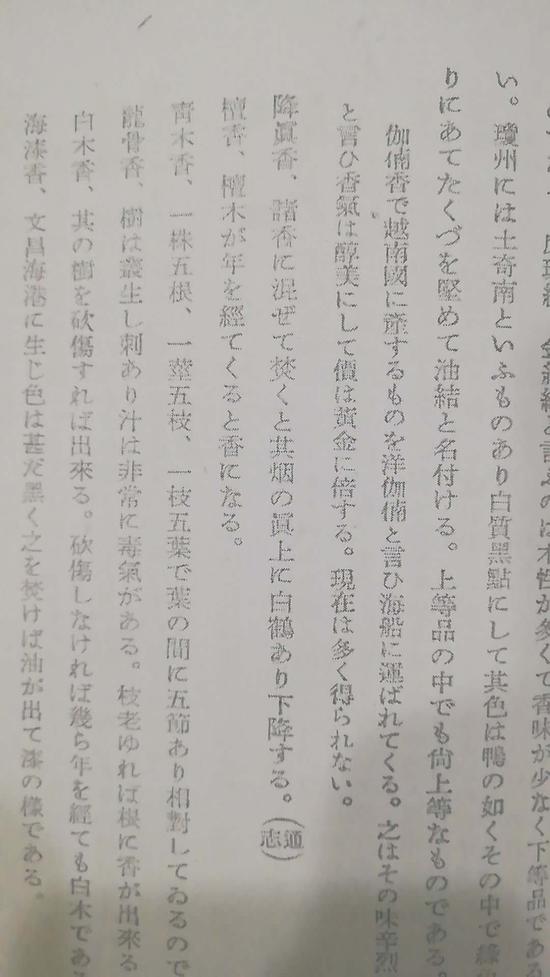 金絲結と言ふのは木性が多くて香味が少なく下等品であ
い。瓊州には土奇南といふものあり白質黑點にして其色は鴨の如くその中で綠
りにあてたくづを堅めて油結と名付ける。上等品の中でも尙上等なものである。
伽㑲香で越南國に產するものを洋伽㑲と言ひ海船に運ばれてくる。之はその味辛烈
と言ひ香氣は醇美にして價は黃金に倍する。現在は多く得られない。
降眞香、諸香に混ぜて焚くと其烟の眞上に白鶴あり下降する。(通志)
檀香、檀木が年を經てくると香になる。
靑木香、一株五根、一莖五枝、一枝五葉で葉の間に五節あり相對してゐるので
龍骨香、樹は叢生し刺あり汁は非常に毒氣がある。枝老ゆれば根に香が出來る
白木香、其の樹を砍傷すれば出來る。砍傷しなければ幾ら年を經ても白木であ
海漆香、文昌海港に生じ色は甚だ黑く之を焚けば油が出て漆の樣である。